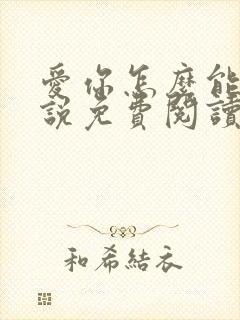 愛你怎麼能
說免費閱讀
和希結衣